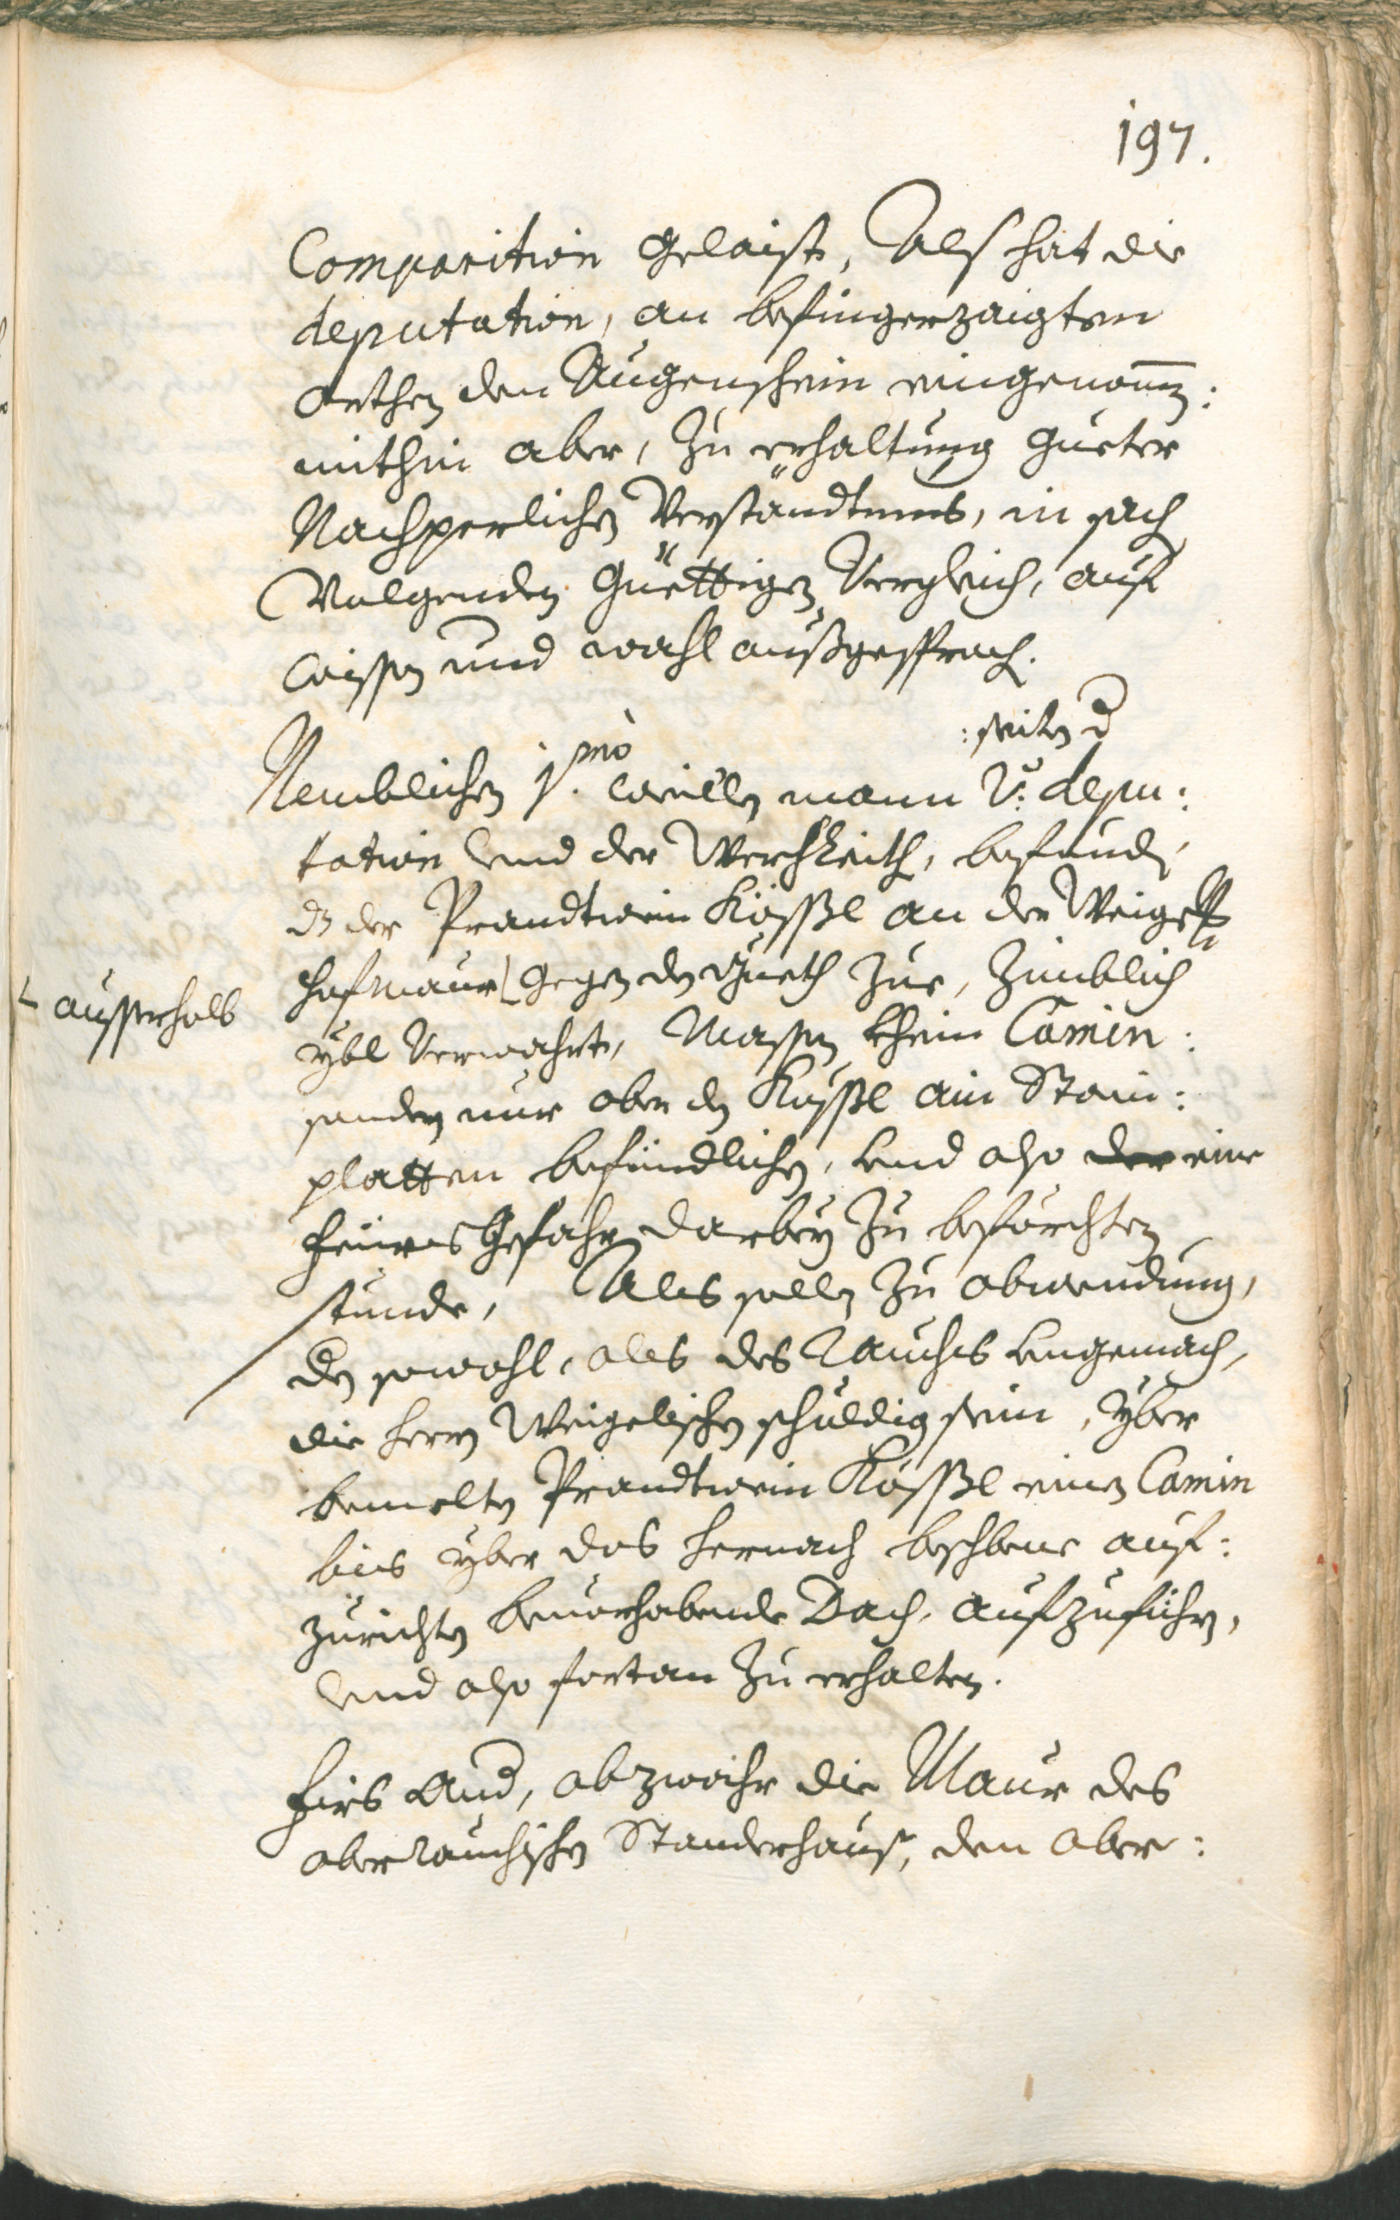 197.
Comparition gelaist, Als hat die
deputation, an befingerzaigten
orthen den Augenschein eingenomen:
mithin aber, zu erhaltung gueter
Nachperlichen Verständtnus, in sach
Volgenden güettigen Vergleich, auf
wissen und wohl außgesprochen.
:seiten d
Nemblichen j.mo weillen mann v: depu:
tation und der Werchleith, befunden,
dz der Prandtwein Kössl an der Weigelisch
hofmaur gegen den zue, zimblich
L ausserhalb
ybl verwahrt, Massen khein Camin:
sonder nur ober den Kössl ain Stain:
platten befündlichen, und also der eine
feürs gefahr darbey zu beförchten
stunde, Als sollen zu abwendung,
den sowohl, als des Rauchs ungemach,
die herrn Weigelischen schuldig sein, yber
bemelten Prandtwein Kössl einen Camin
bis yber das hernach beschbene auf:
zurichten bevorhabende Dach, aufzuführen,
und also fortan zu erhalten.
Firs And, obzwahr die Maur des
oberrauchischen Standerhaus, den ober: